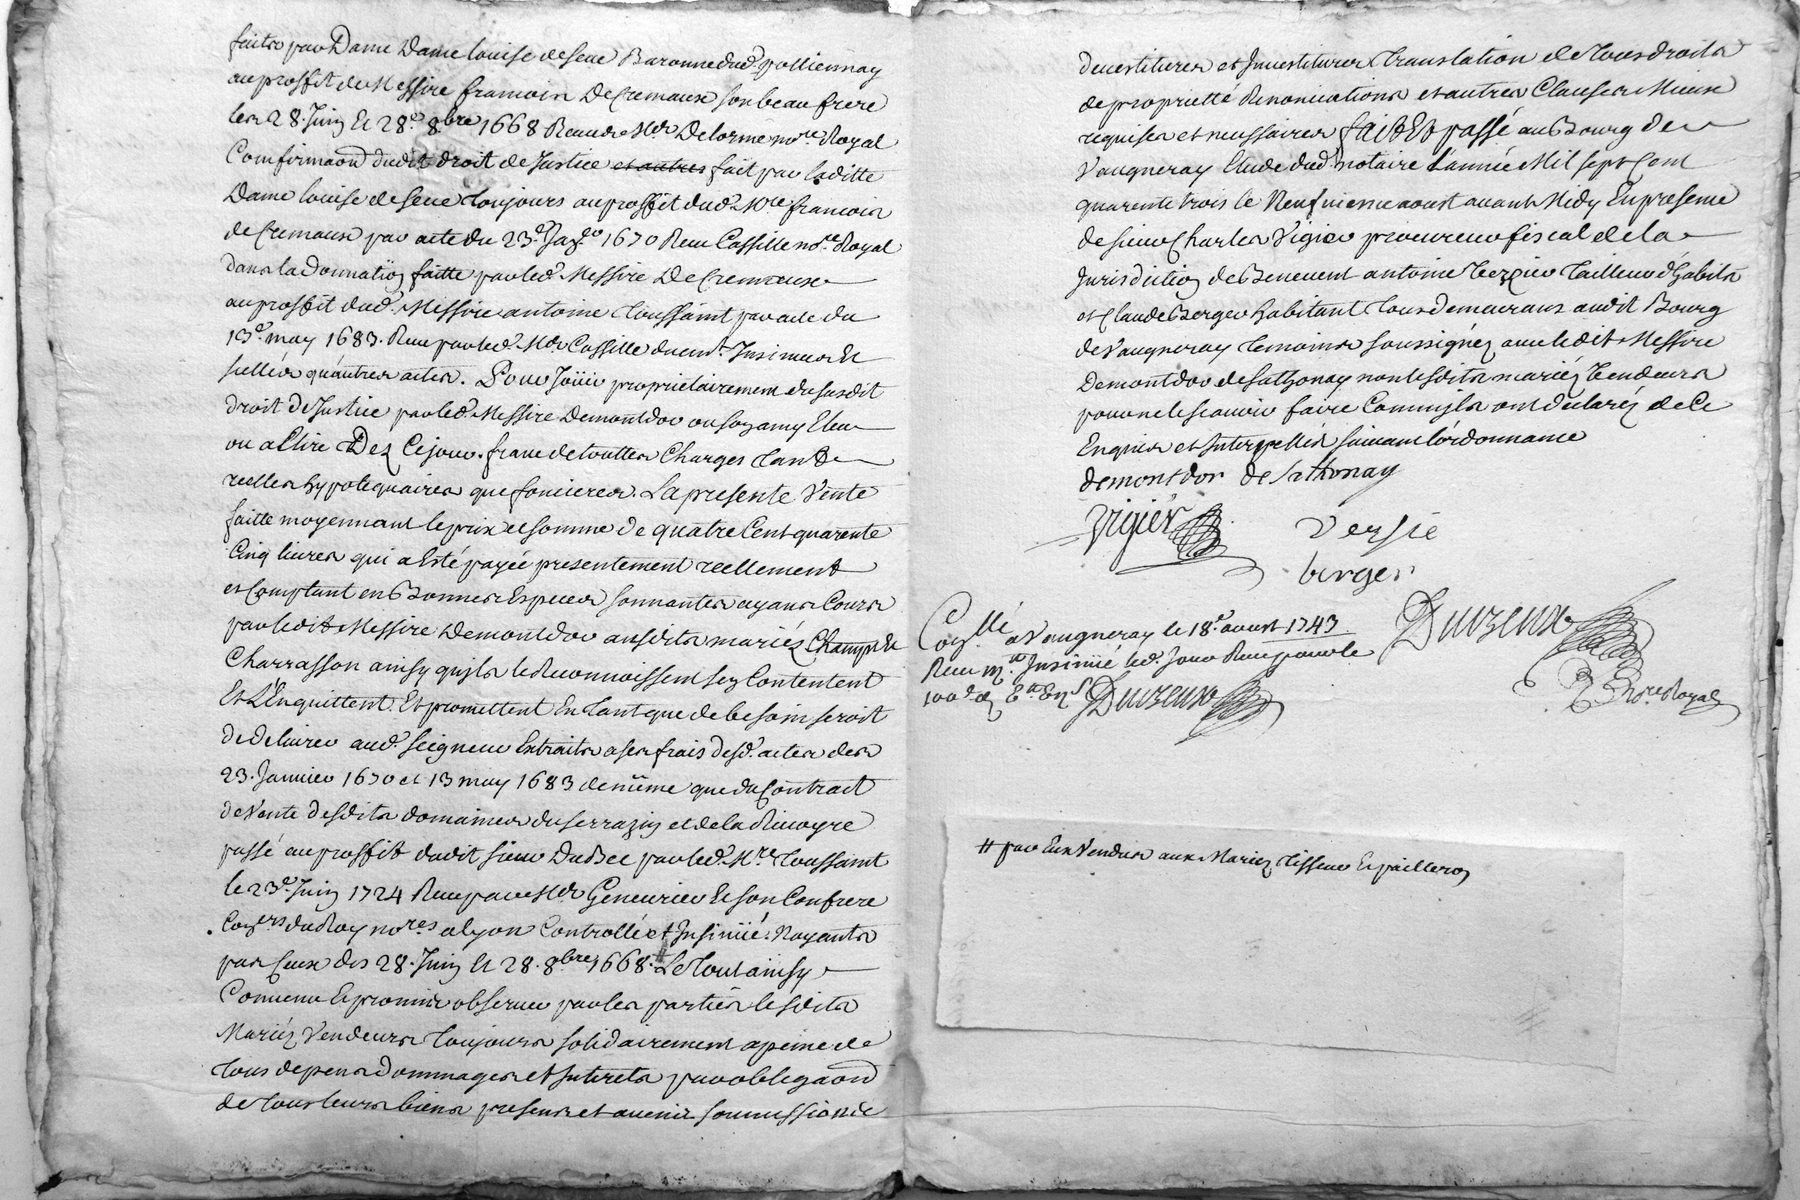 faitte par Dame Dame louise deseve Baronne dud. polliennay
au proffit de Messire francois De Cremaux son beau frere
les 28. Juin Et 28.e 8bre 1668 Receu de Me Delorme no.re Royal
Comfirmaon dudit droit de Justice et autres fait par laditte
Dame louise de seve toujours au proffit dud. M.re francois
de Cremaux par acte du 23.e Jan.er 1670 Receu Cassille no.re Royal
dans la donnation faitte par led. Messire De Cremeaux
au proffit dud. Messire antoine toussaint par acte du
13.e may 1683. Receu par led. Me Cassille duem.t Insinuez Et
sellés quantres actes. Pour Joüir proprietairement du susdit
droit de Justice par led. Messire Demontdor ou son amy Eleu
ou a Elire Dez Ce jour. franc de touttes Charges tant
reelles hypotequaires que foncieres. La presente Vente
faitte moyennant le prix et somme de quatre Cent quarente
Cinq livres qui a Esté payée presentement reellement
et Comptant en Bonnes Especes sonnantes ayans Cours
par ledit Messire Demontdor ausdits mariéz Champ de
Charrasson ainsy qu'ils le Reconnoissent sen Contentent
Et L'Enquittent Et promettent En tant que de besoin seroit
de delivrer aud. seigneur Extraits a ses frais desd. actes des
23. Janvier 1670 et 13 may 1683 de même que du Contract
de Vente desdits domaines du serrazin et de la Rivoyre
passé au proffit dudit sieur Dubec par led. M.re toussaint
le 23.e Juin 1724 Receu par Me Genevrier Et son Confrere
Con.ers du Roy no.res a lyon Controllé et Insinüé. Nayants
pas Ceux des 28. Juin Et 28. 8bre 1668. # Le tout ainsy
Convenu Et promis observer par les parties lesdits
Mariéz Vendeurs toujours solidairement a peine de
tous depens dommages et Interets par obligaon
de tous leurs biens presens et avenir soumissions
devestitures et Investitures translation de tous droits
de proprietté Renonciations et autres Clauses Mieux
requises et necessaires fait Et passé au Bourg de
Vaugneray Etude dud. notaire L'année Mil sept Cent
quarente trois le Neufvieme aoust avant Midy En presence
de sieur Charles Vigier procureur fiscal de la
Jurisdiction de Benevent antoine Vercier tailleur d'habits
et Claude Berger habitant tous demeurans audit Bourg
de Vaugneray temoins soussignéz avec ledit Messire
Demontdor de sathonay non lesdits mariéz Vendeurs
pour ne le scavoir faire Comm'ils ont declaréz de Ce
Enquis et Interpellés suivant l'ordonnance
demontdor de sathonay
Vigier Versie
berger
Con.llé a Vaugneray le 18.e aoust 1743 Duvzeux
Receu Insinüé led. Jour Receu pour le
100.e d. Duvzeux
No.re Royal
# par Eux Vendus aux Mariéz tisseur Et pailleron